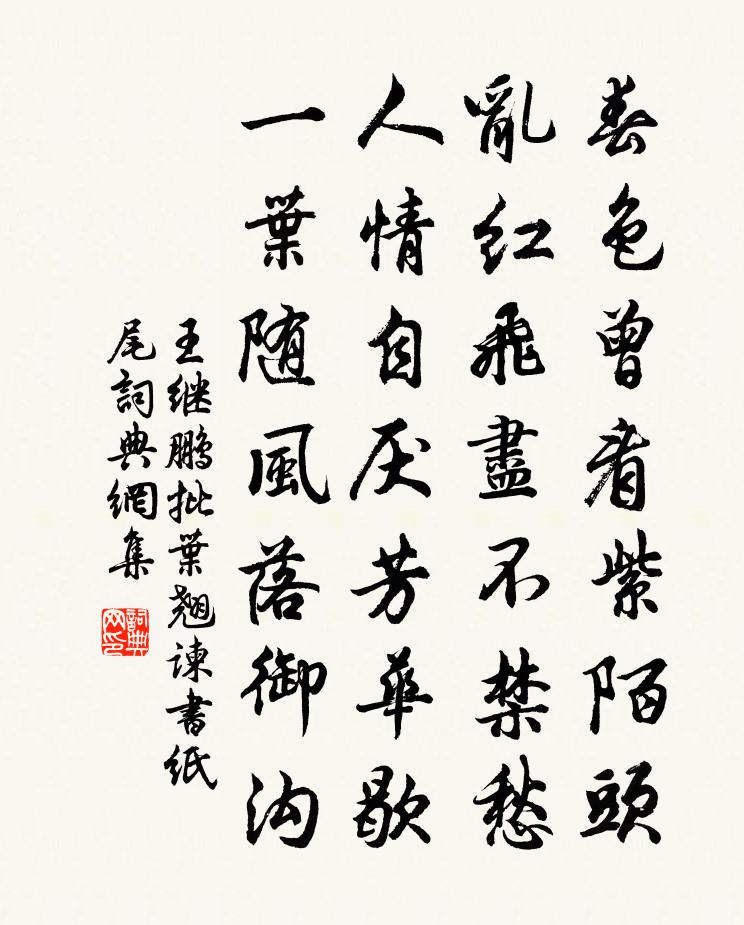 春色曾看紫陌頭
亂红飛盡不禁愁
人情自厌芳華歇
一葉随風落御沟
王继鹏批葉翘諫書纸
尾詞典網集
詞典网印